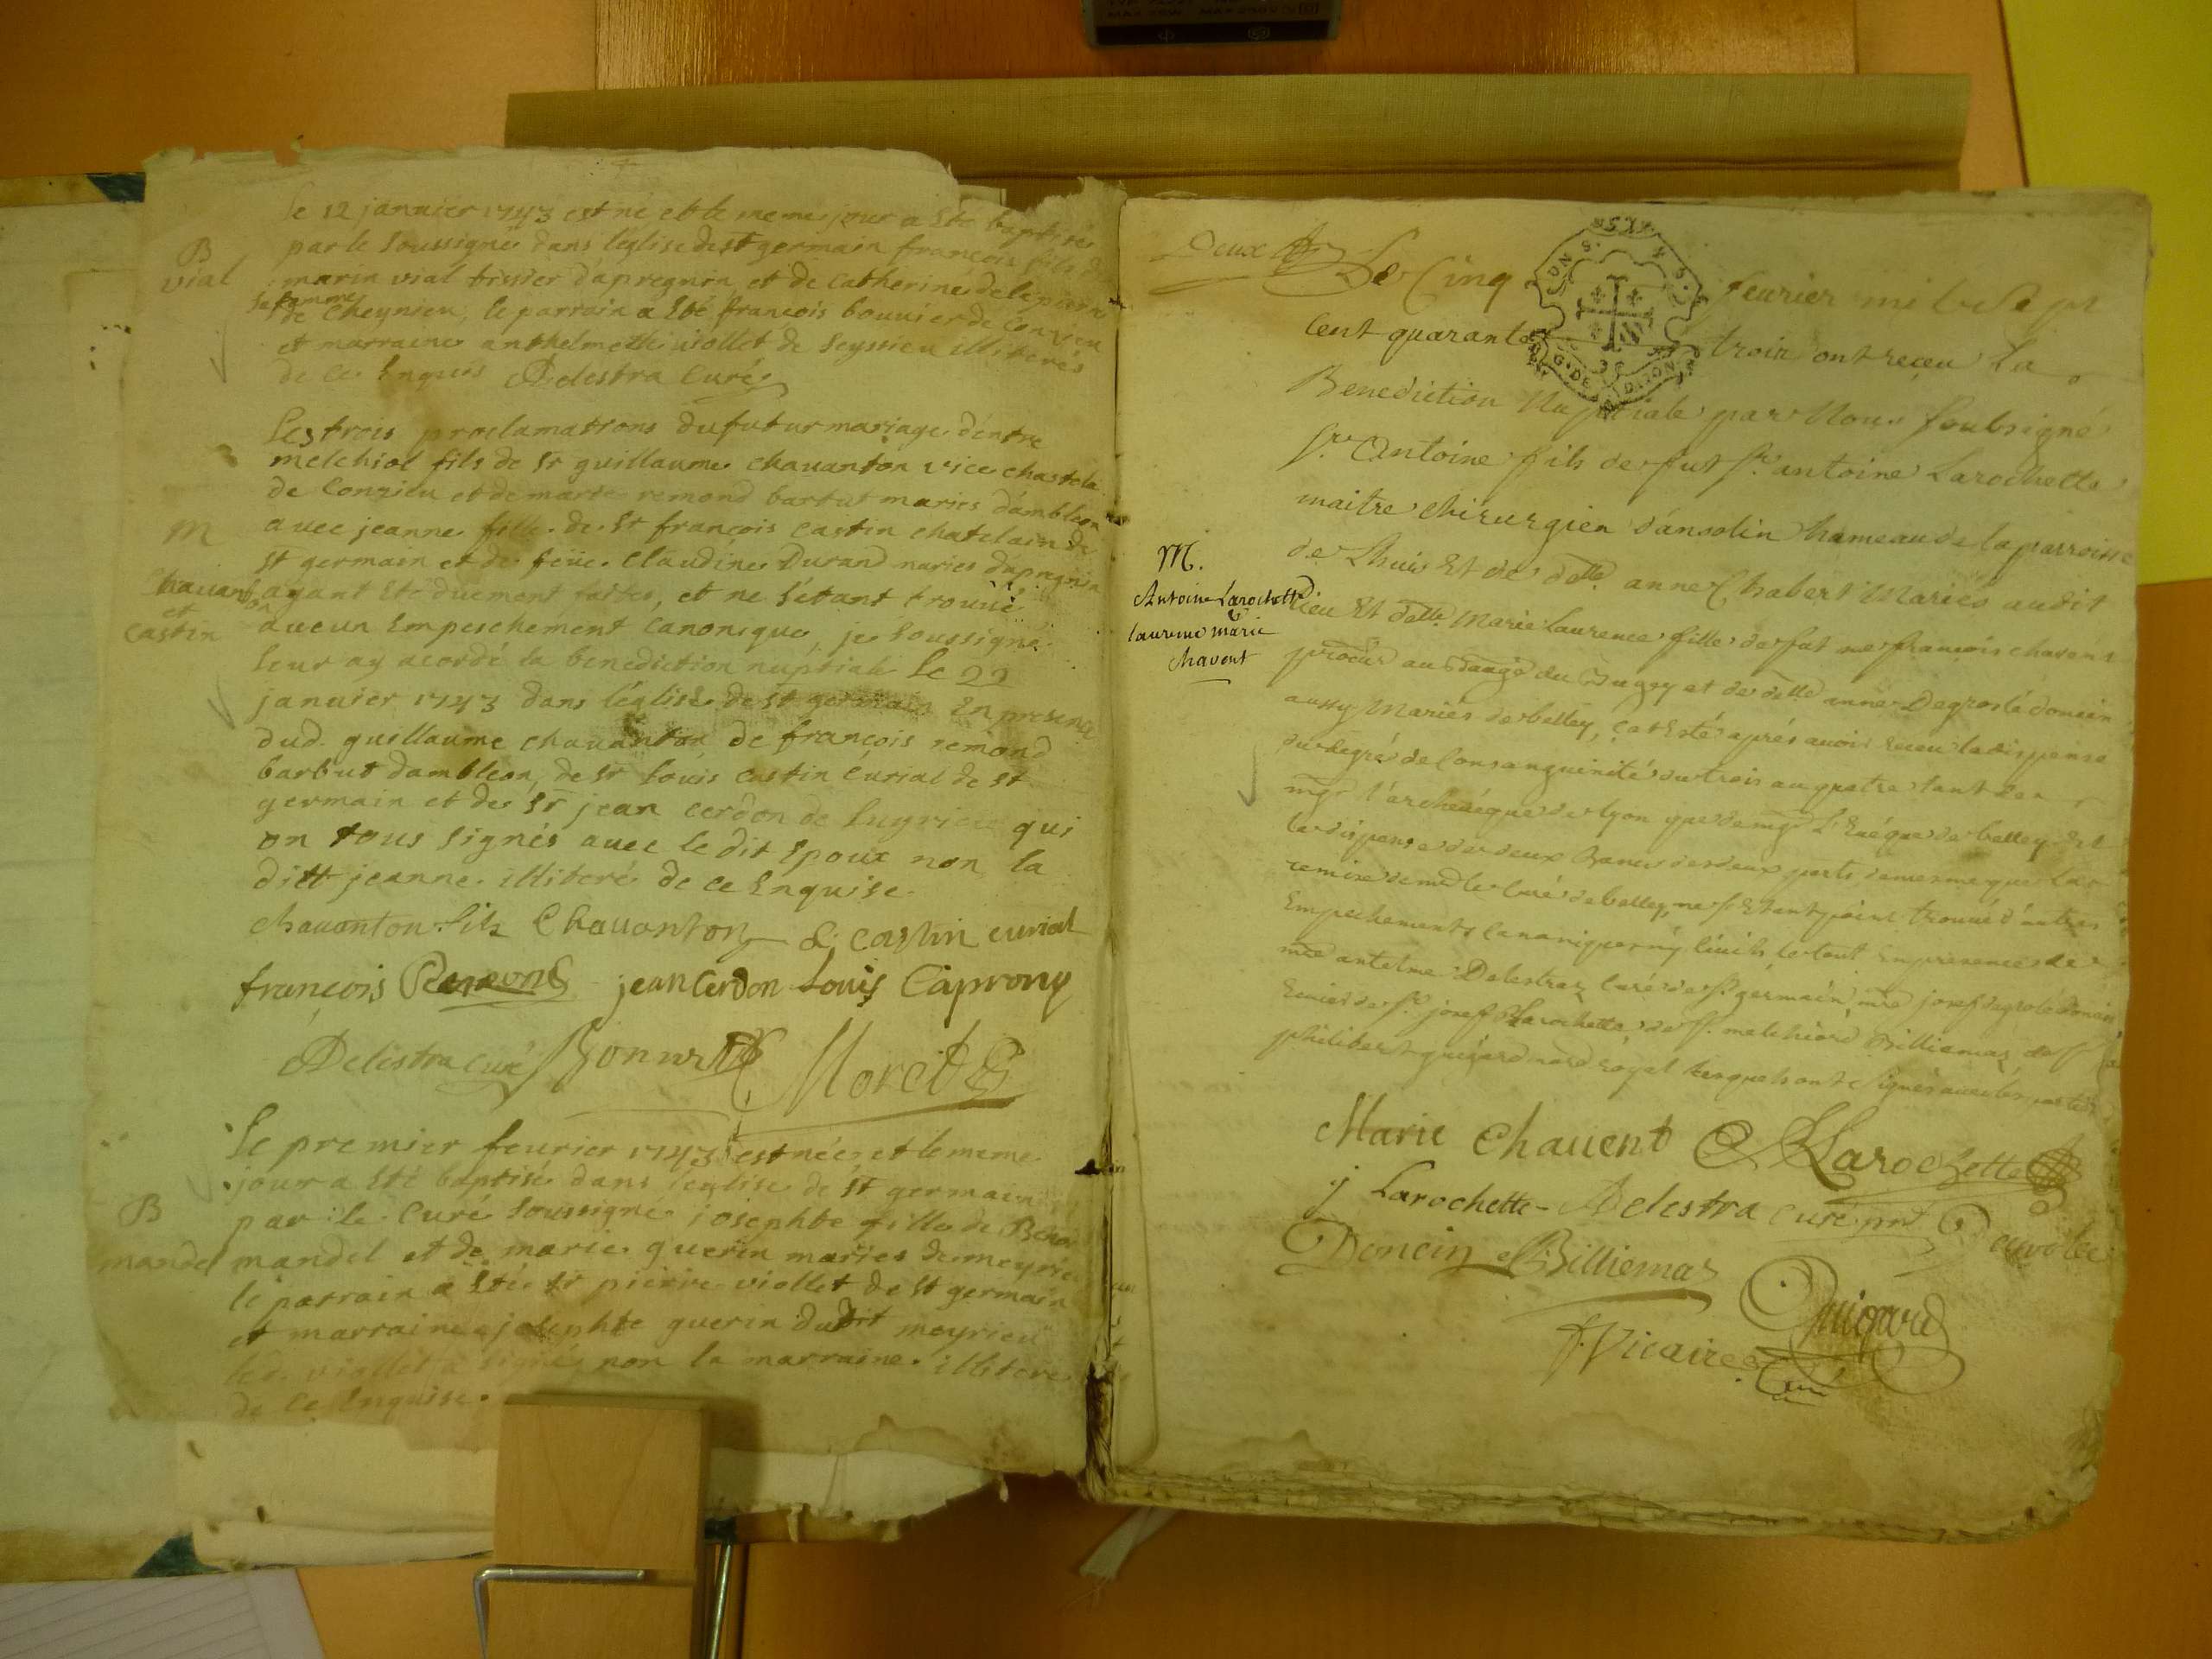 B
vial
le 12 janvier 1743 est né et le meme jour a été baptisé
par le soussigné dans l'église de st germain françois fils de
marin vial tissier d'apregnin et de catherine delapierre
sa femme
de cheynieu, le parrain a été françois bouvier de conzieu
et marraine anthelmette viollet de seyssieu illiterés
de ce enquis Delestra curé
M
chavanton
et
castin
Les trois proclamations du futur mariage d'entre
melchiol fils de sr guillaume chavanton vice chastela
de conzieu et de marie remond barbut maries d'ambleon
avec jeanne fille de sr françois castin chatelain de
st germain et de feüe claudine Durand maries d'apregnin
ayant été duement faites, et ne s'étant trouvé
aucun empeschement canonique, je soussigné
leur ay acordé la benediction nuptiale le 22
janvier 1743 dans l'église de st germain En presence
dud. guillaume chavanton de françois remond
barbut d'ambleon, de sr louis castin curial de st
germain et de sr jean cerdon de lugrieu qui
on tous signés avec le dit Epoux non la
ditt jeanne illiteré de ce Enquise.
chavanton fils Chavanton castin curial
françois Remond jean Cerdon Louis Caprony
Delestra curé Bonnet Moret
B
mandel
le premier fevrier 1743 est née et le meme
jour a été baptisé dans l'eglise de st germain
par le curé soussigné josephte fille de Benoi
mandel et de marie guerin maries de meyrieu
le parrain a été sr pierre viollet de st germain
et marraine josephte guerin dudit meyrieu
led. viollet a signé, non la marraine illiteré
de ce Enquise.
Deux
GEN. DE DIJON
Le Cinq fevrier mil sept
cent quarante trois ont reçeu La
Benediction Nuptiale par Nous soubsigné
sr. Antoine fils de fut sr. antoine Larochette
maitre chirurgien d'ansolin hameau de la parroisse
de Lhuis Et de delle anne Chabert Mariés audit
M.
Antoine Larochette
&
laurence marie
chavent
lieu Et delle Marie Laurence fille de fut me françois chavent
procur au Baage du Bugey et de delle anne Degrolé doncin
aussy Mariés de belley, ça Esté aprés avoir receu la dispense
du degré de Consanguinité du trois au quatre tant de
mgr l'archevéque de lyon que de mgr L'Evéque de belley Et
la dispense de deux Bancs des deux parts, de mesme que La
remise de mr le curé de belley, ne s'Etant point trouvé d'autres
Empechements canoniques ny civils, le tout En presence de
mre antelme Delestraz curé de st germain, mre josef degrolé doncin
Ecuier de sr. josef Larochette, de sr. melchiord Billiemaz de sr
philibert guigard nore royal Lesquels ont signés avec les parties
Marie Chavent Larochette
j Larochette - Delestra curé pnt
Doncin Billiemaz
Guigard
Vicaire